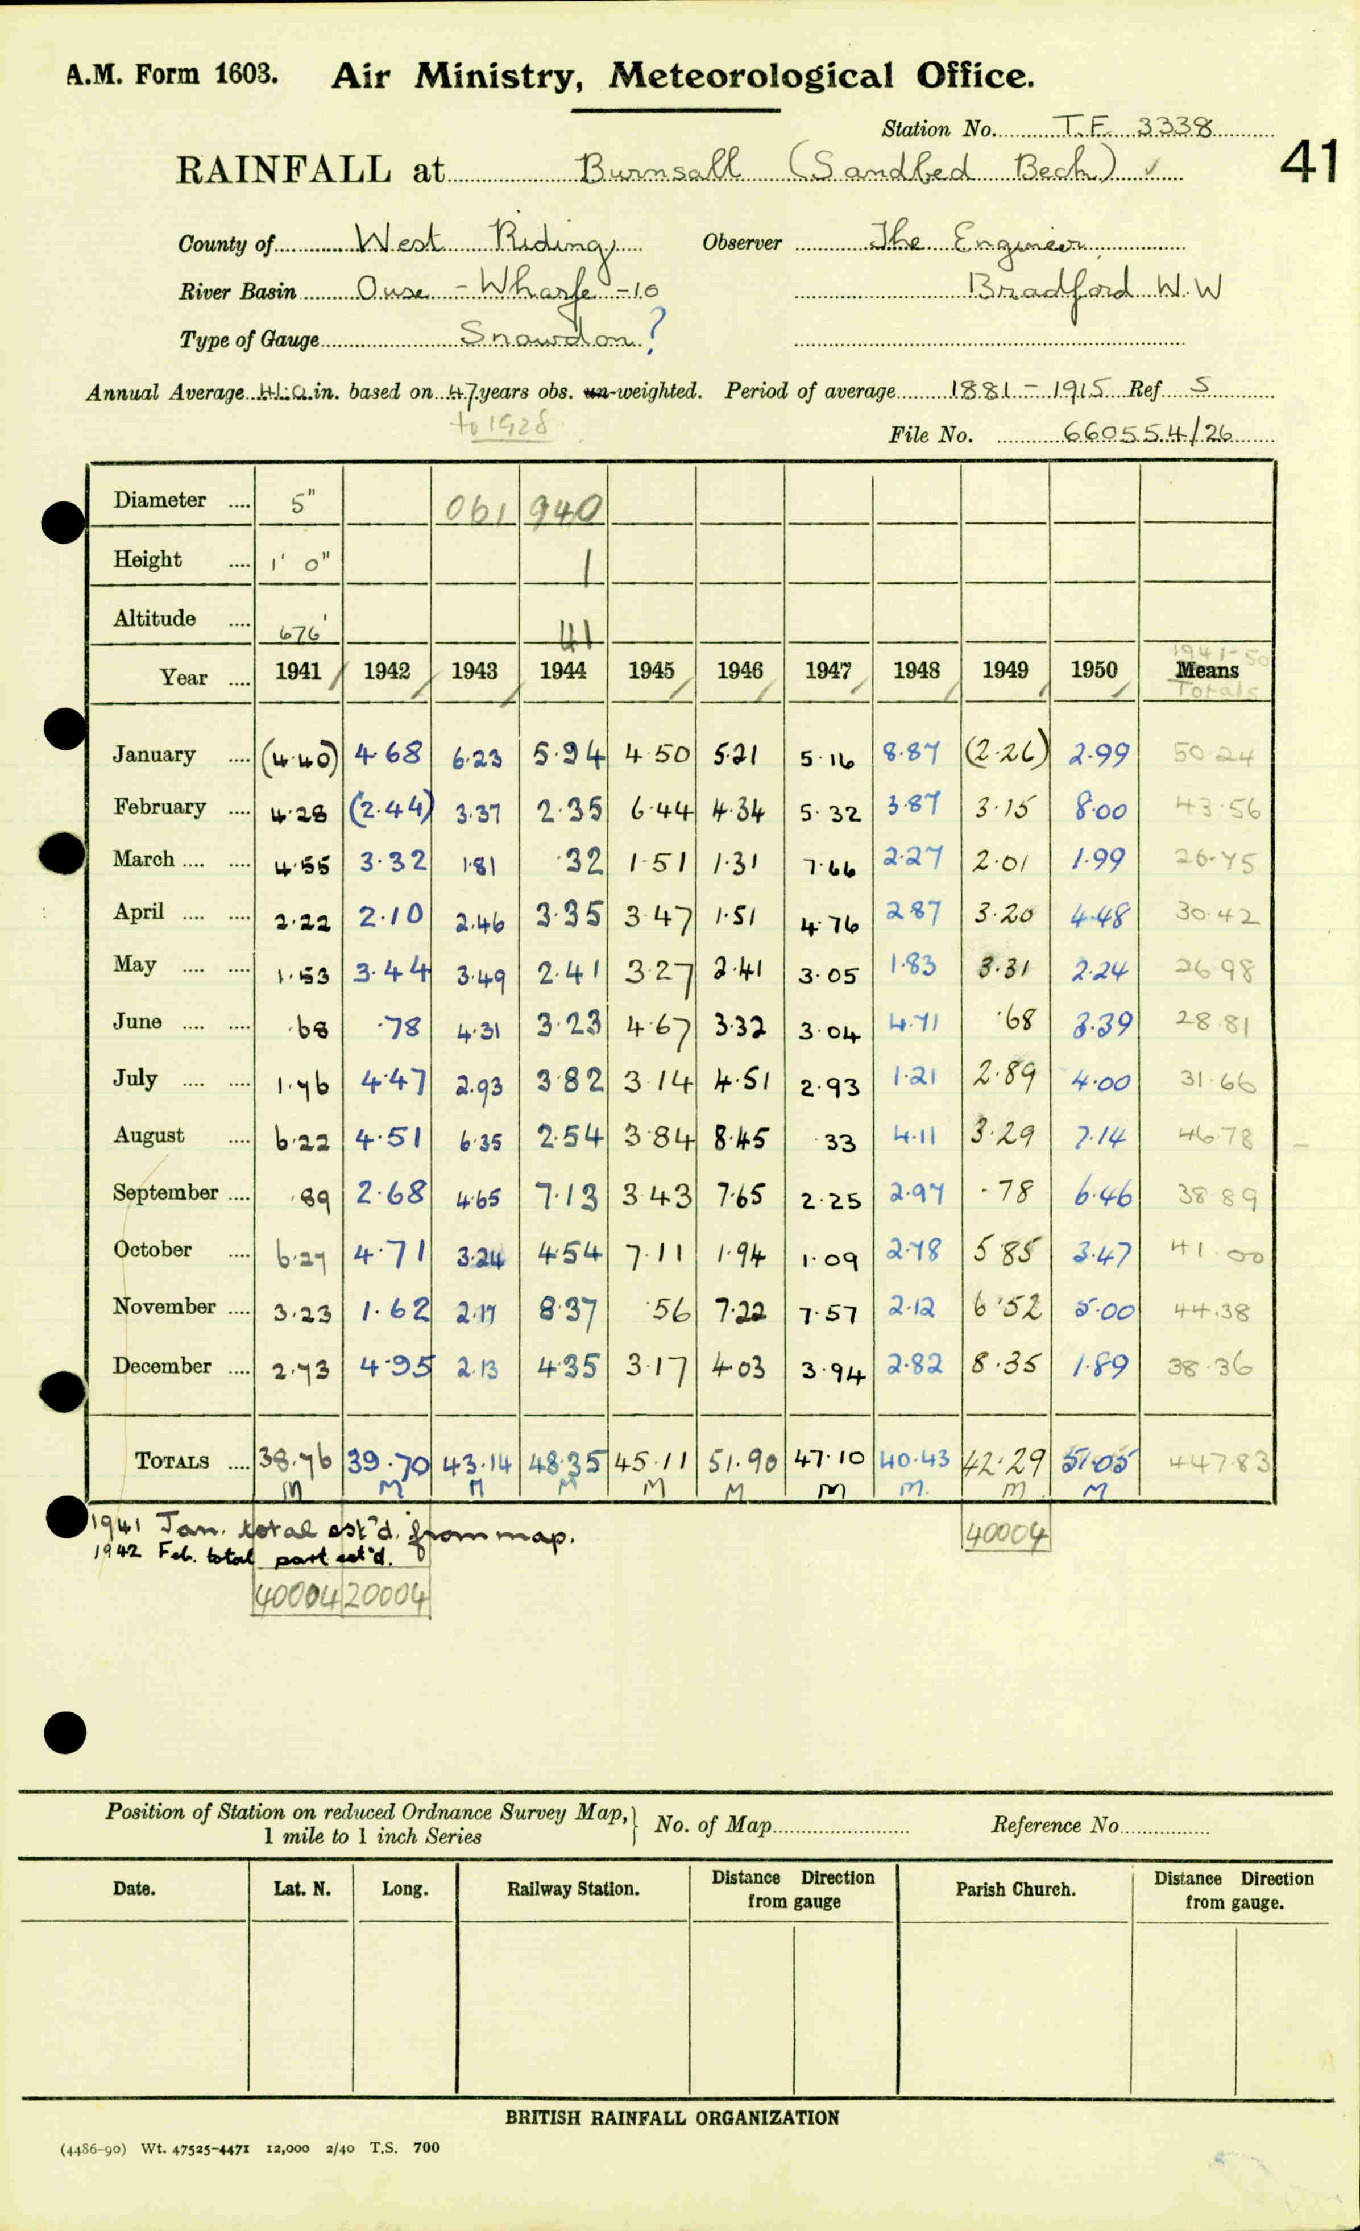 A.M. Form 1603. Air Ministry, Meteorological Office.
Station No. T.F. 3338
41
RAINFALL at Burnsall (Sandbed Beck) ✓
County of West Riding Observer The Engineer,
River Basin Ouse - Wharfe -10 Bradford W.W
Type of Gauge Snowdon ?
Annual Average 41.0 in. based on 47 years obs. un-weighted. Period of average 1881 - 1915 Ref S
to 1928
File No. 660554/26
Diameter .... 5" 061 940
Height .... 1' 0" 1
Altitude .... 676' 41
1941-50
Year .... 1941 1942 1943 1944 1945 1946 1947 1948 1949 1950 Means
Totals
January .... (4.40) 4.68 6.23 5.94 4.50 5.21 5.16 8.87 (2.26) 2.99 50.24
February .... 4.28 (2.44) 3.37 2.35 6.44 4.34 5.32 3.87 3.15 8.00 43.56
March .... .... 4.55 3.32 1.81 .32 1.51 1.31 7.66 2.27 2.01 1.99 26.75
April .... .... 2.22 2.10 2.46 3.35 3.47 1.51 4.76 2.87 3.20 4.48 30.42
May .... .... 1.53 3.44 3.49 2.41 3.27 2.41 3.05 1.83 3.31 2.24 26.98
June .... .... .68 .78 4.31 3.23 4.67 3.32 3.04 4.71 .68 3.39 28.81
July .... .... 1.76 4.47 2.93 3.82 3.14 4.51 2.93 1.21 2.89 4.00 31.66
August .... 6.22 4.51 6.35 2.54 3.84 8.45 .33 4.11 3.29 7.14 46.78
September .... .89 2.68 4.65 7.13 3.43 7.65 2.25 2.97 .78 6.46 38.89
October .... 6.27 4.71 3.24 4.54 7.11 1.94 1.09 2.78 5.85 3.47 41.00
November .... 3.23 1.62 2.17 8.37 .56 7.22 7.57 2.12 6.52 5.00 44.38
December .... 2.73 4.95 2.13 4.35 3.17 4.03 3.94 2.82 8.35 1.89 38.36
TOTALS .... 38.76 39.70 43.14 48.35 45.11 51.90 47.10 40.43 42.29 51.05 447.83
M M M M M M M M M M
1941 Jan. total est'd. from map. 40004
1942 Feb. total part est'd.
40004 20004
Position of Station on reduced Ordnance Survey Map, No. of Map Reference No
1 mile to 1 inch Series
Date. Lat. N. Long. Railway Station. Distance Direction from gauge Parish Church. Distance Direction from gauge.
BRITISH RAINFALL ORGANIZATION
(4486-90) Wt. 47525-4471 12,000 2/40 T.S. 700